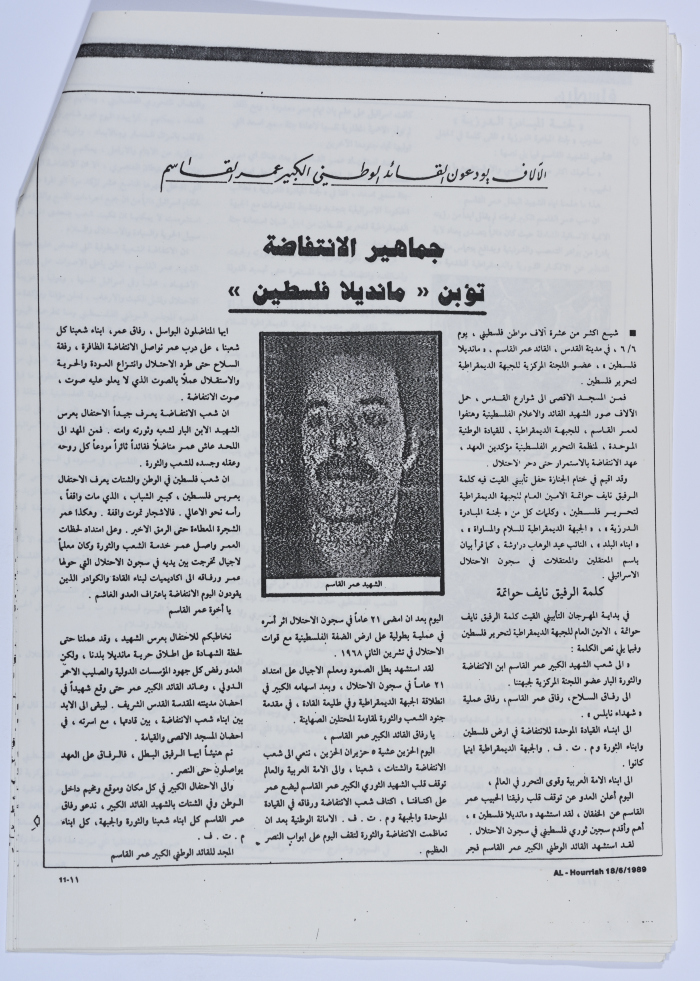 الآلاف يودعون القائد الوطني الكبير عمر القاسم
جماهير الانتفاضة
تؤبن « مانديلا فلسطين »
■ شيع اكثر من عشرة آلاف مواطن فلسطيني ، يوم
٦/٦ ، في مدينة القدس ، القائد عمر القاسم ، « مانديلا
فلسطين » ، عضو اللجنة المركزية للجبهة الديمقراطية
لتحرير فلسطين .
فمن المسجد الاقصى الى شوارع القدس ، حمل
الآلاف صور الشهيد القائد والاعلام الفلسطينية وهتفوا
لعمر القاسم ، للجبهة الديمقراطية ، للقيادة الوطنية
الموحدة ، لمنظمة التحرير الفلسطينية مؤكدين العهد ،
عهد الانتفاضة بالاستمرار حتى دحر الاحتلال .
وقد اقيم في ختام الجنازة حفل تأبيني القيت فيه كلمة
الرفيق نايف حواتمة الامين العام للجبهة الديمقراطية
لتحرير فلسطين ، وكلمات كل من « لجنة المبادرة
الدرزية » ، « الجبهة الديمقراطية للسلام والمساواة » ،
« ابناء البلد » ، النائب عبد الوهاب دراوشة ، كما قرأ بيان
باسم المعتقلين والمعتقلات في سجون الاحتلال
الاسرائيلي .
كلمة الرفيق نايف حواتمة
في بداية المهرجان التأبيني القيت كلمة الرفيق نايف
حواتمة ، الامين العام للجبهة الديمقراطية لتحرير فلسطين
وفيما يلي نص الكلمة :
« الى شعب الشهيد الكبير عمر القاسم ابن الانتفاضة
والثورة البار عضو اللجنة المركزية لجبهتنا .
الى رفاق السلاح، رفاق عمر القاسم، رفاق عملية
« شهداء نابلس » .
الى ابناء القيادة الموحدة للانتفاضة في ارض فلسطين
وابناء الثورة و م . ت . ف . والجبهة الديمقراطية اينما
كانوا .
الى ابناء الامة العربية وقوى التحرر في العالم ،
اليوم أعلن العدو عن توقف قلب رفيقنا الحبيب عمر
القاسم عن الخفقان ، لقد استشهد « مانديلا فلسطين » ،
أهم وأقدم سجين ثوري فلسطيني في سجون الاحتلال .
لقد استشهد القائد الوطني الكبير عمر القاسم فجر
الشهيد عمر القاسم
اليوم بعد ان امضى ٢١ عاماً في سجون الاحتلال اثر أسره
في عملية بطولية على ارض الضفة الفلسطينية مع قوات
الاحتلال في تشرين الثاني ١٩٦٨ .
لقد استشهد بطل الصمود ومعلم الاجيال على امتداد
٢١ عاماً في سجون الاحتلال ، وبعد اسهامه الكبير في
انطلاقة الجبهة الديمقراطية وفي طليعة القادة ، في مقدمة
جنود الشعب والثورة لمقاومة المحتلين الصهاينة .
يا رفاق القائد الكبير عمر القاسم ،
اليوم الحزين عشية ٥ حزيران الحزين ، ننعي الى شعب
الانتفاضة والشتات ، شعبنا ، والى الامة العربية والعالم
توقف قلب الشهيد الثوري الكبير عمر القاسم ليضع عمر
على اكتافنا ، اكتاف شعب الانتفاضة ورفاقه في القيادة
الموحدة والجبهة و م . ت . ف . الامانة الوطنية بعد ان
تعاظمت الانتفاضة والثورة لتقف اليوم على ابواب النصر
العظيم .
ايها المناضلون البواسل ، رفاق عمر، ابناء شعبنا كل
شعبنا ، على درب عمر نواصل الانتفاضة الظافرة ، رفقة
السلاح حتى طرد الاحتلال وانتزاع العودة والحرية
والاستقلال عملاً بالصوت الذي لا يعلو عليه صوت ،
صوت الانتفاضة .
ان شعب الانتفاضة يعرف جيداً الاحتفال بعرس
الشهيد الابن البار لشعبه وثورته وامته . فمن المهد الى
اللحد عاش عمر مناضلاً فقائداً ثائراً مودعاً كل روحه
وعقله وجسده للشعب والثورة .
ان شعب فلسطين في الوطن والشتات يعرف الاحتفال
بعريس فلسطين ، كبير الشباب ، الذي مات واقفاً ،
رأسه نحو الاعالي . فالاشجار تموت واقفة . وهكذا عمر
الشجرة المعطاءة حتى الرمق الاخير . وعلى امتداد لحظات
العمر واصل عمر خدمة الشعب والثورة وكان معلماً
لاجيال تخرجت بين يديه في سجون الاحتلال التي حولها
عمر ورفاقه الى اكاديميات لبناء القادة والكوادر الذين
يقودون اليوم الانتفاضة باعتراف العدو الغاشم .
يا أخوة عمر القاسم
نخاطبكم للاحتفال بعرس الشهيد ، وقد عملنا حتى
لحظة الشهادة على اطلاق حرية مانديلا بلدنا ، ولكن
العدو رفض كل جهود المؤسسات الدولية والصليب الاحمر
الدولي ، وعاند القائد الكبير عمر حتى وقع شهيداً في
احضان مدينته المقدسة القدس الشريف . ليبقى الى الابد
بين ابناء شعب الانتفاضة ، بين قادتها ، مع اسرته ، في
احضان المسجد الاقصى والقيامة .
نم هنيئاً ايها الرفيق البطل ، فالرفاق على العهد
يواصلون حتى النصر .
والى الاحتفال الكبير في كل مكان وموقع ومخيم داخل
الوطن وفي الشتات بالشهيد القائد الكبير ، ندعو رفاق
عمر القاسم كل ابناء شعبنا والثورة والجبهة، كل ابناء
م . ت . ف .
المجد للقائد الوطني الكبير عمر القاسم
AL - Hourriah 18/6/1989